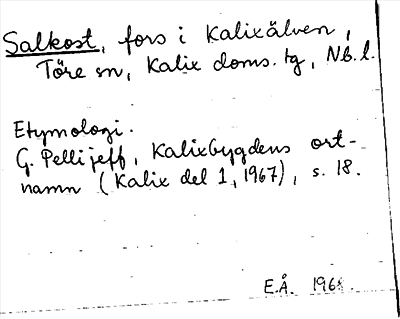 Salkost, fors i Kalixälven,
Töre sn, Kalix doms. tg, Nb. l.
Etymologi.
G. Pellijeff, Kalixbygdens ort-
namn (Kalix del 1, 1967), s. 18.
E.Å. 1968.